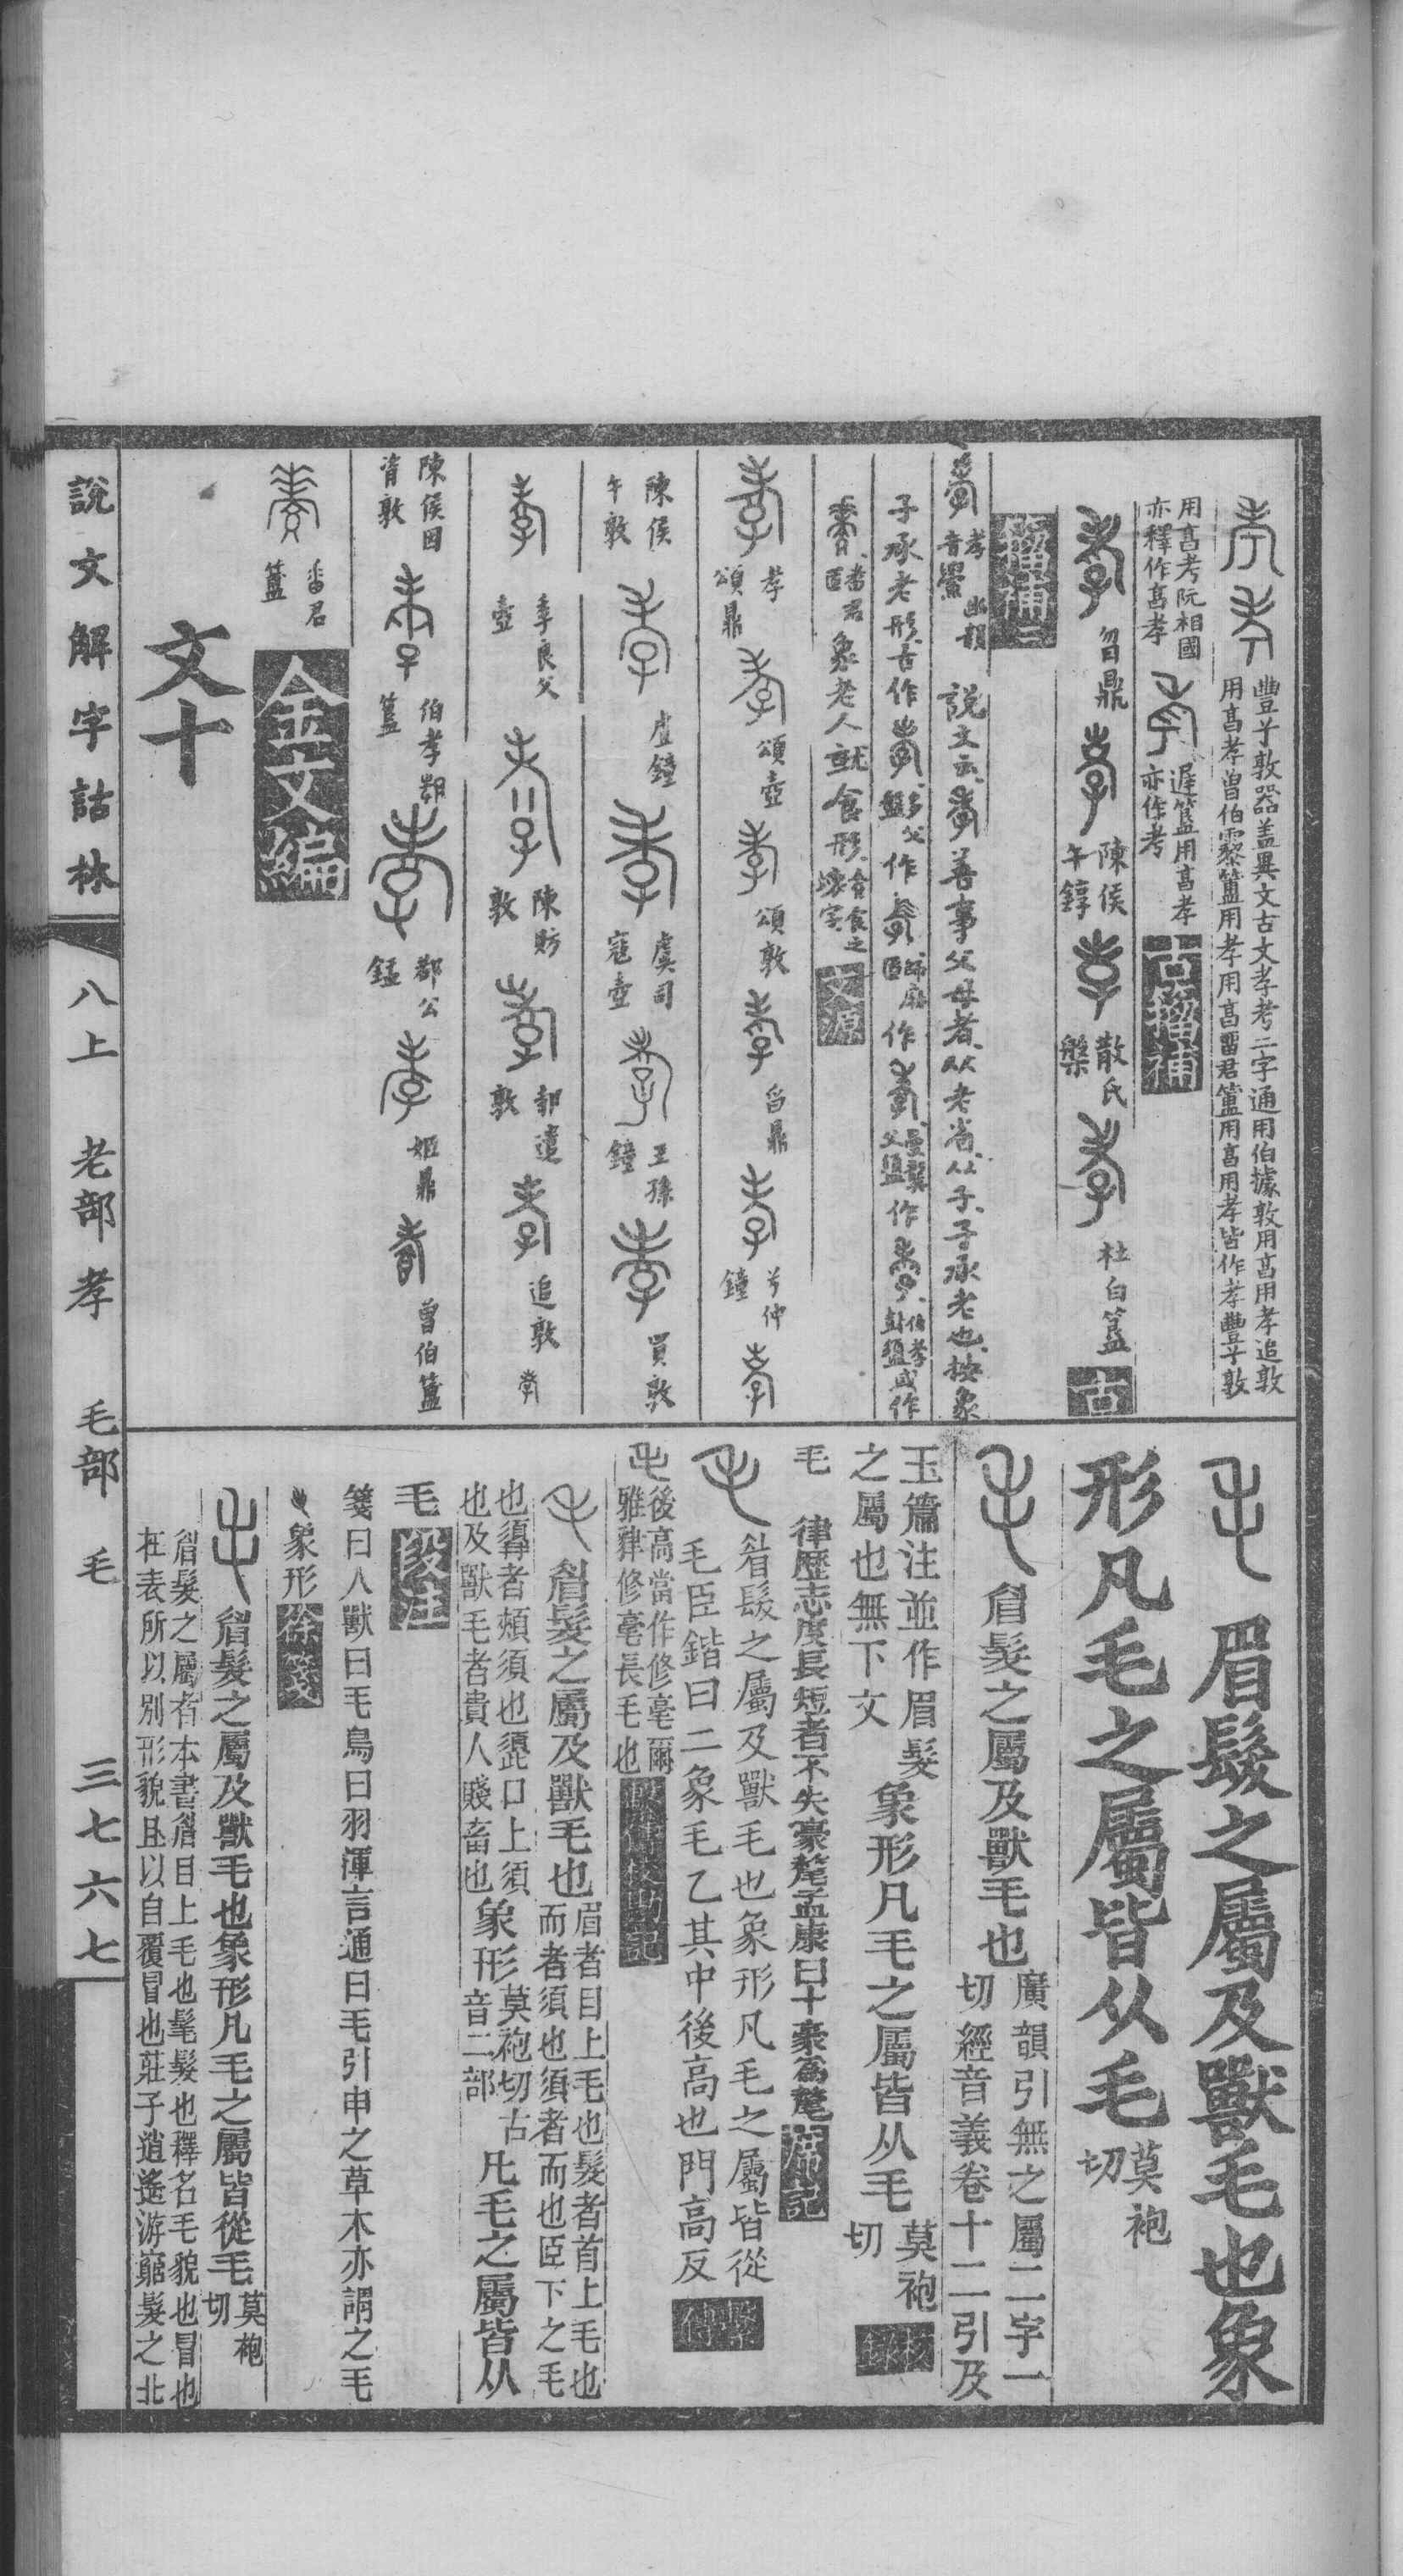 豐兮敦器蓋異文古文孝考二字通用伯據敦用亯用孝追敦
用亯孝曾伯霥簠用孝用亯畱君簠用亯用孝皆作孝豐兮敦
用亯考阮相國
亦釋作亯孝
遲簋用亯孝
亦作考
古籀補
曶鼎
陳侯
午錞
散氏
槃
杜白簋
古
籀補三
孝幽韻
音嘼
說文云善事父母者从老省从子子承老也按象
子承老形古作
父
作
師麻
作
曼龏
父盨
作
伯孝
盨或作
番君
象老人就食形
文源
孝
頌鼎
頌壺
頌敦
舀鼎
兮仲
鐘
陳侯
午敦
虘鐘
虞司
寇壺
王孫
鐘
買敦
季良父
壺
陳肪
敦
敦
追敦
陳侯因
𦣞敦
伯孝
簋
都公
錳
姬鼎
曾伯簠
番君
簠
金文編
文十
眉髮之屬及獸毛也象
形凡毛之屬皆从毛
莫袍
切
眉髮之屬及獸毛也
廣韻引無之屬二字一
切經音義卷十二引及
玉篇注並作眉髮
之屬也無下文
象形凡毛之屬皆从毛
莫袍
切
校錄
毛
律歷志度長短者不失豪氂孟康曰十豪爲氂
席記
眉髮之屬及獸毛也象形凡毛之屬皆從
毛臣鍇曰二象毛乙其中後高也門高反
繫傳
後高當作修毫爾
雅肄修毫長毛也
繫傳校勘記
眉髮之屬及獸毛也
眉者目上毛也髮者首上毛也
而者須也須者而也臣下之毛
也𩓣者頰須也頾口上須
也及獸毛者貴人賤畜也
象形
莫袍切古
音二部
凡毛之屬皆从
毛
段注
箋曰人獸曰毛鳥曰羽渾言通曰毛引申之草木亦謂之毛
象形
徐箋
眉髮之屬及獸毛也象形凡毛之屬皆從毛
莫袍
切
眉髮之屬者本書眉目上毛也髦髮也釋名毛貌也冒也
在表所以別形貌且以自覆冒也莊子逍遙游窮髮之北
說文解字詁林
八上
老部
孝
毛部
毛
三七六七